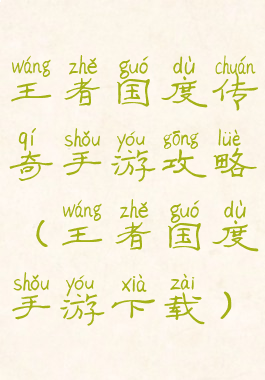 wáng zhě guó dù chuán
王者国度传
qí shǒu yóu gōng lüè
奇手游攻略
wáng zhě guó dù
（王者国度
shǒu yóu xià zài
手游下载）